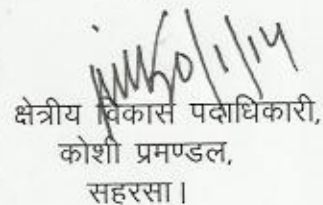 क्षेत्रीय विकास पदाधिकारी,
कोशी प्रमण्डल,
सहरसा।